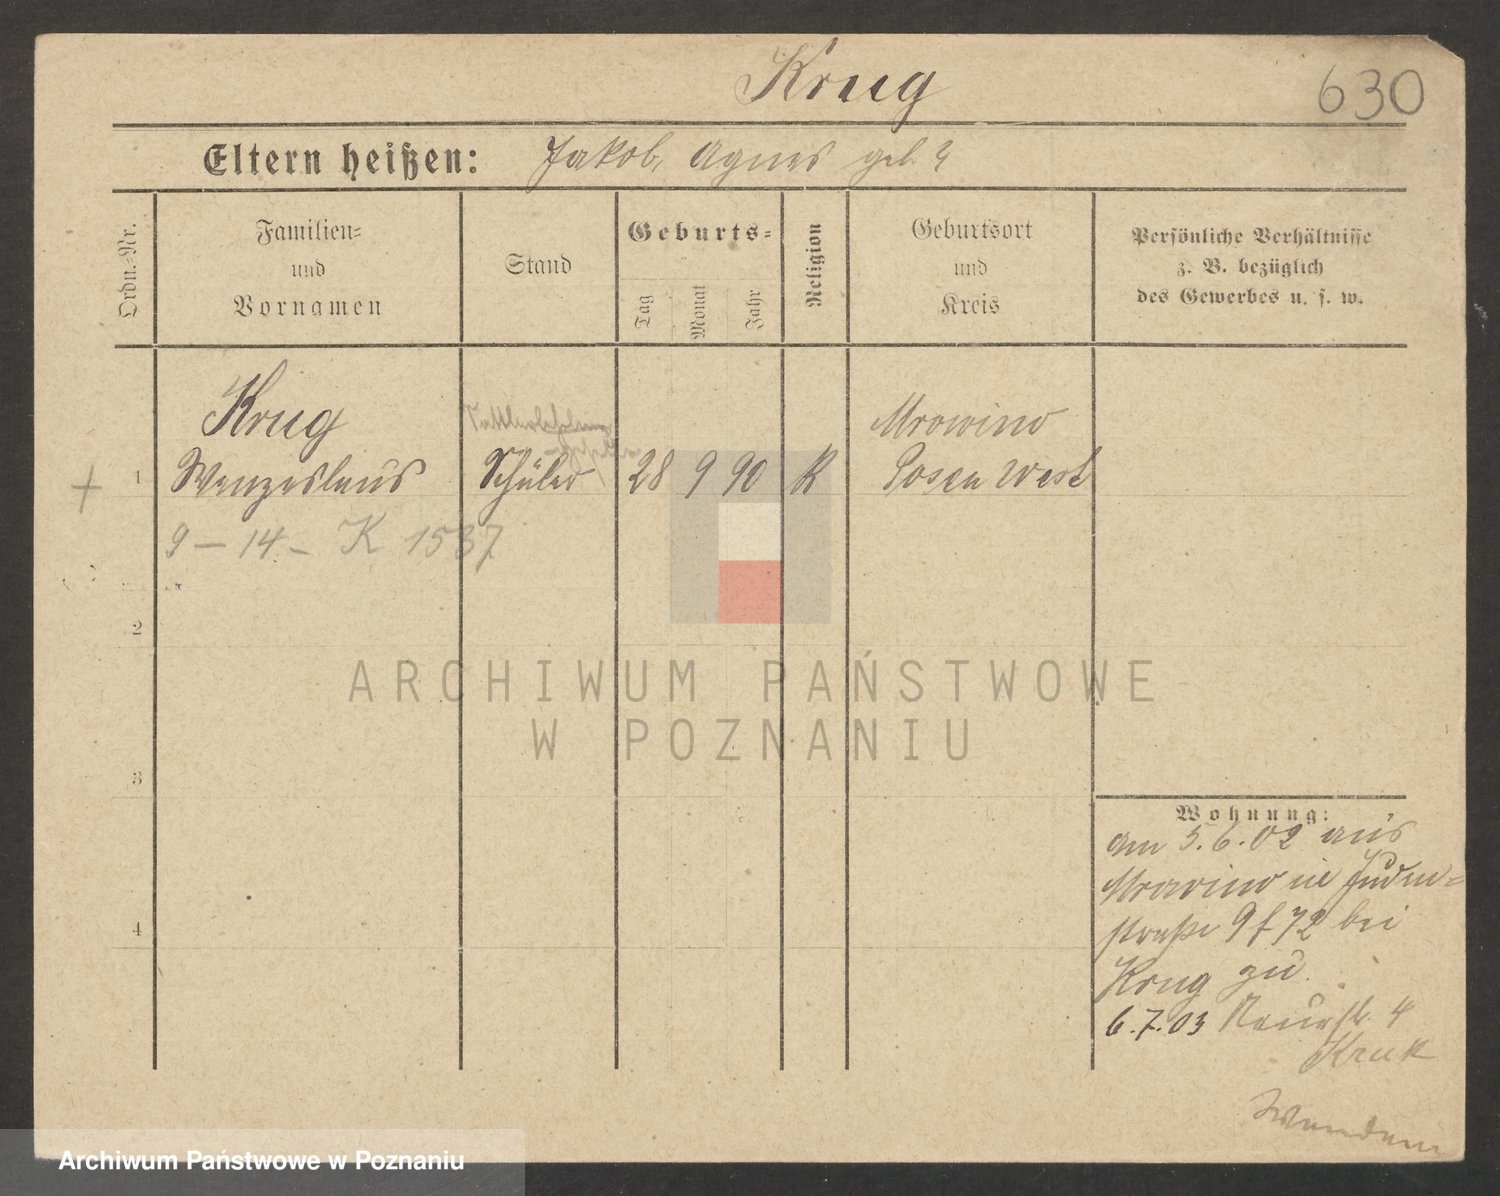 Krug
630
Eltern heißen: Jakob, Agnes geb. ?
Ordn.-Nr.
Familien-
und
Vornamen
Stand
Geburts-
Tag
Monat
Jahr
Religion
Geburtsort
und
Kreis
Persönliche Verhältnisse
z. B. bezüglich
des Gewerbes u. s. w.
Krug Mrowino
+ 1 Wenzeslaus Schüler 28 9 90 K Posen West
9 – 14 – K 1537
2
ARCHIWUM PAŃSTWOWE
W POZNANIU
3
Wohnung:
am 5.6.02 aus
Mrowino in Juden-
4
straße 9 f 72 bei
Krug zu.
6.7.03 Neuestr. 4
Kruk
Archiwum Państwowe w Poznaniu